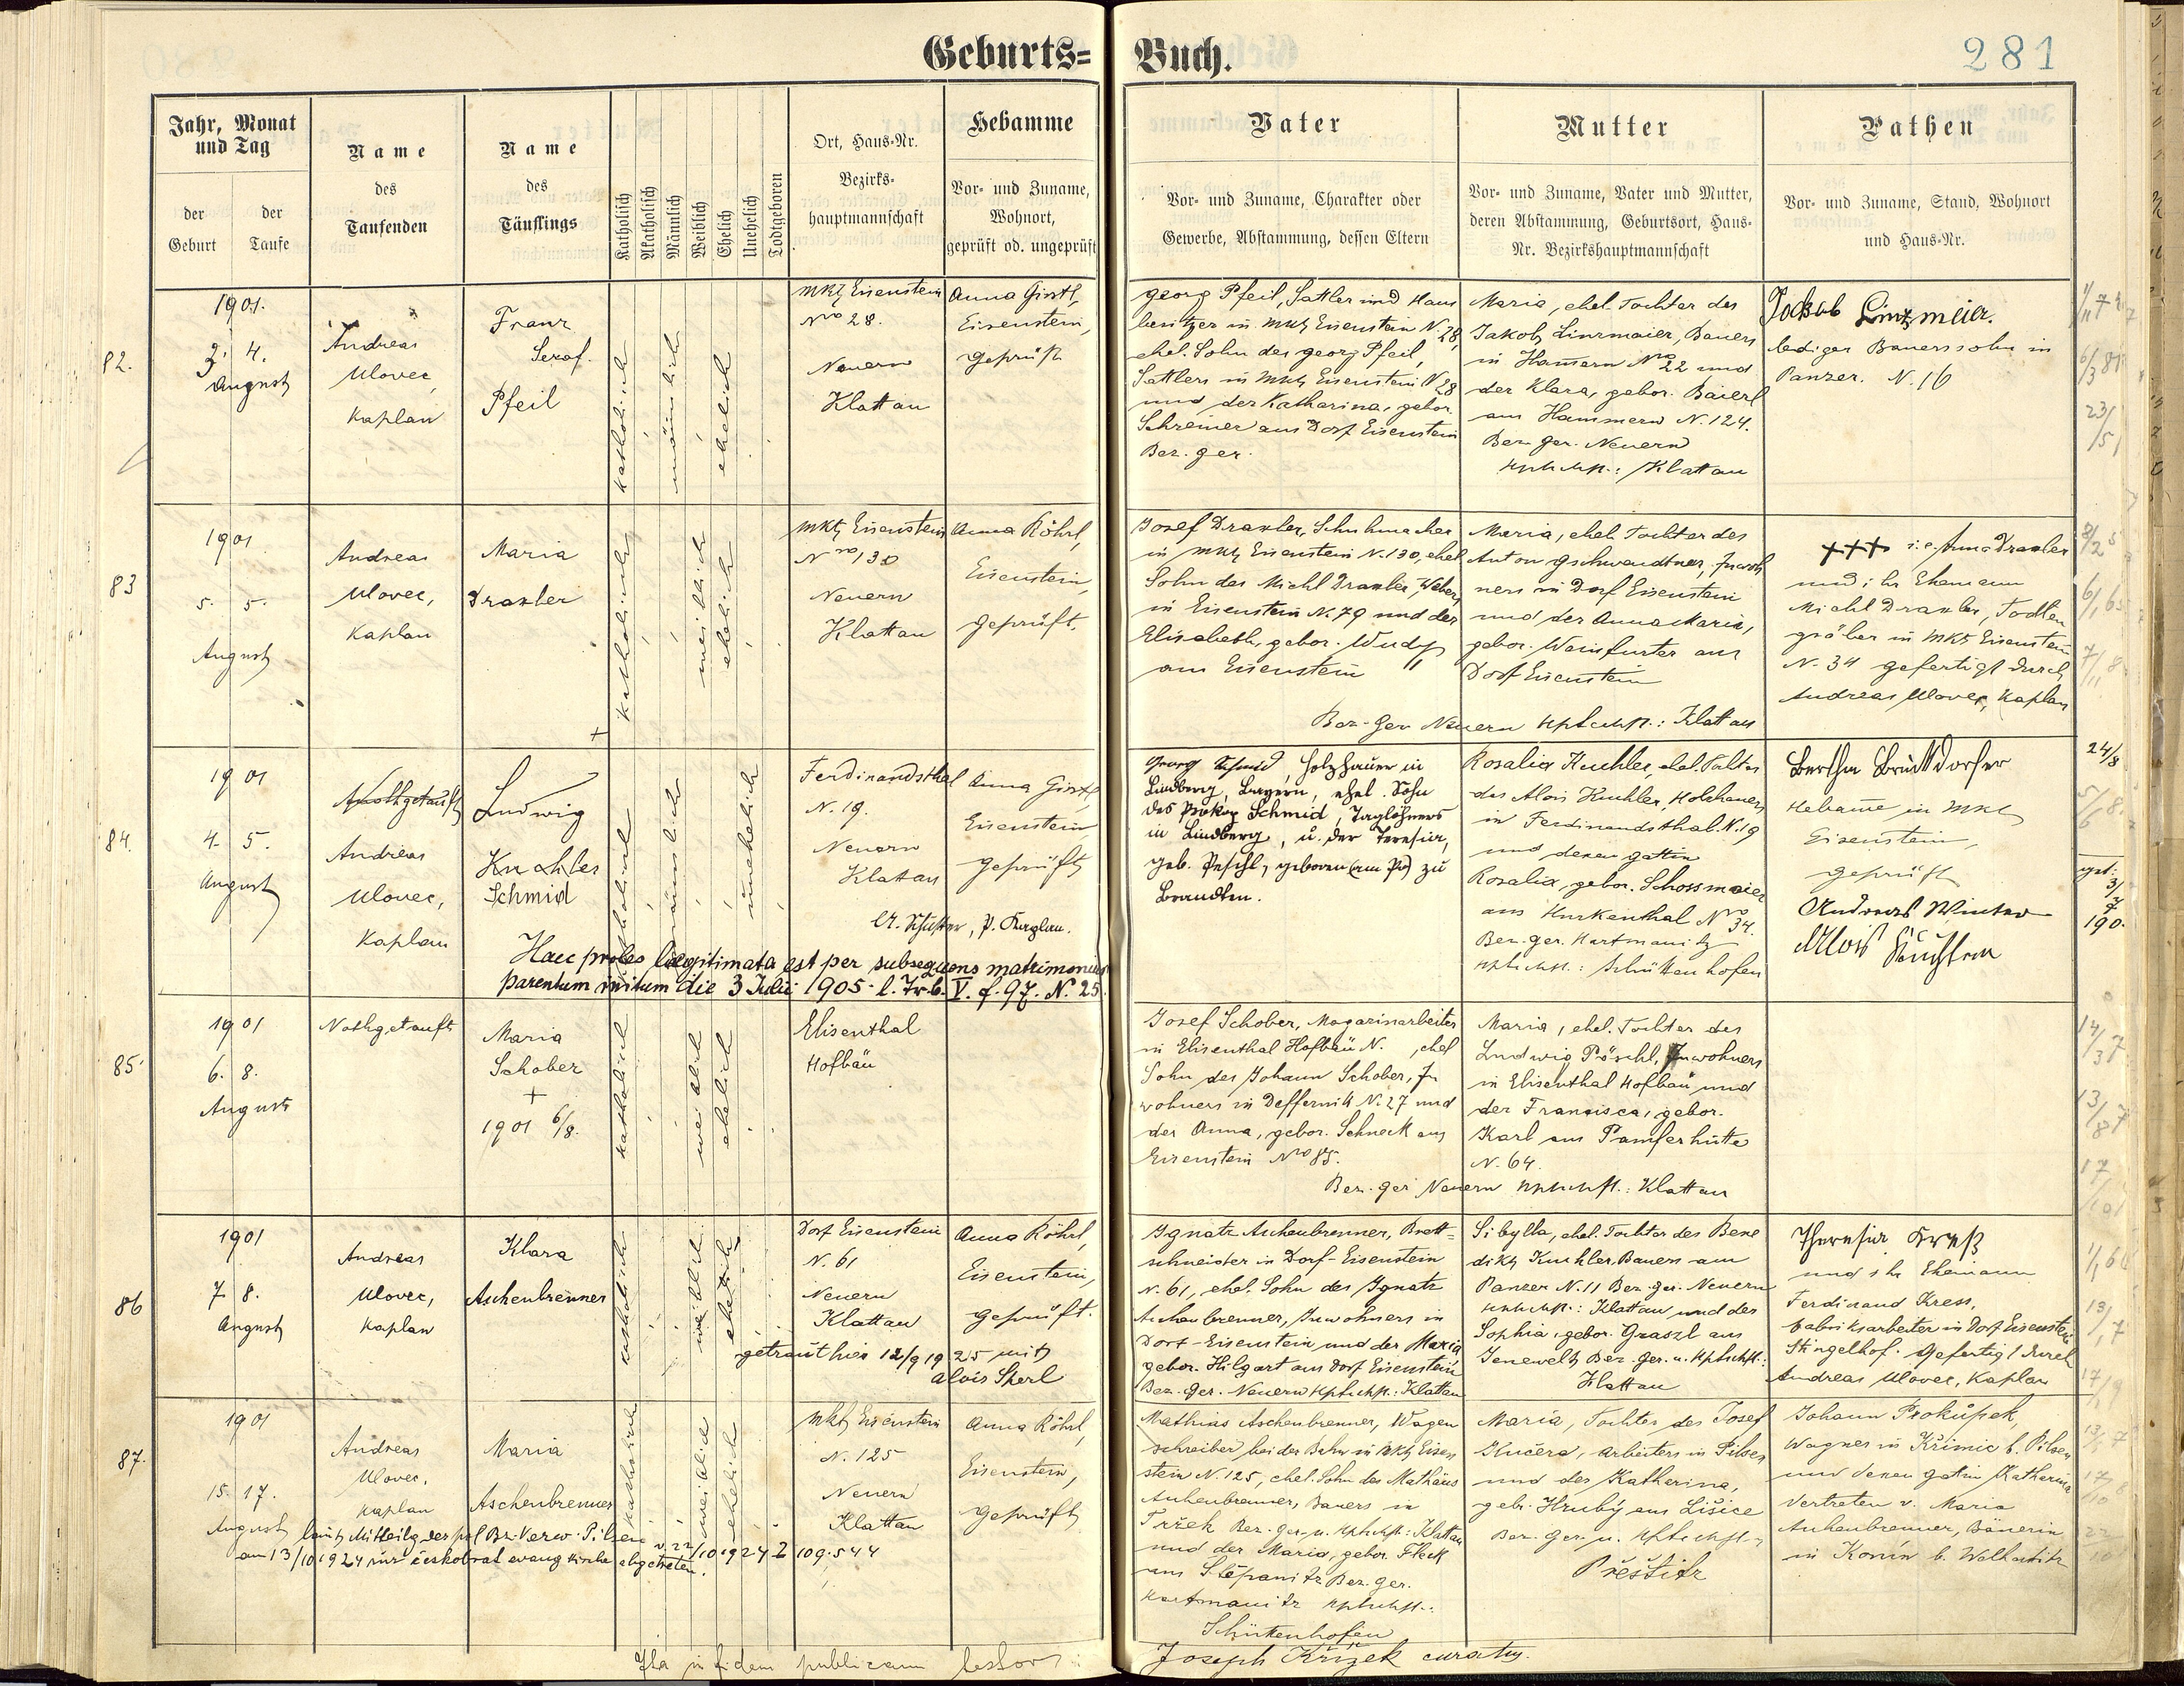 Geburts=
Buch.
281
Jahr, Monat
und Tag
der
Geburt
der
Taufe
Name
des
Taufenden
Name
des
Täuflings
Katholisch
Akatholisch
Männlich
Weiblich
Ehelich
Unehelich
Todtgeboren
Ort, Haus-Nr.
Bezirks-
hauptmannschaft
Hebamme
Vor- und Zuname,
Wohnort,
geprüft od. ungeprüft
Vater
Vor- und Zuname, Charakter oder
Gewerbe, Abstammung, dessen Eltern
Mutter
Vor- und Zuname, Vater und Mutter,
deren Abstammung, Geburtsort, Haus-
Nr. Bezirkshauptmannschaft
Pathen
Vor- und Zuname, Stand, Wohnort
und Haus-Nr.
82.
1901.
3. 4.
August
Andreas
Ulovec,
Kaplan
Franz
Seraf.
Pfeil
katholisch
männlich
ehelich
Mkt Eisenstein
Nro 28.
Neuern
Klattau
Anna Girstl,
Eisenstein,
geprüft
Georg Pfeil, Sattler und Haus
besitzer in Mkt Eisenstein N. 28,
ehel. Sohn des Georg Pfeil,
Sattlers in Mkt Eisenstein N 28
und der Katharina, gebor.
Schreiner aus Dorf Eisenstein
Bez. ger.
Maria, ehel. Tochter des
Jakob Linzmaier, Bauers
in Hamern Nro 22 und
der Klara, gebor. Baierl
aus Hammern N. 124.
Bez. ger. Neuern
Hptschft.: Klattau
Jackob Linzmeier.
lediger Bauerssohn in
Panzer. N. 16
83
1901
5. 5.
August
Andreas
Ulovec,
Kaplan
Maria
Draxler
+
katholisch
weiblich
ehelich
Mkt Eisenstein
Nro 130
Neuern
Klattau
Anna Röhrl,
Eisenstein,
geprüft.
Josef Draxler, Schuhmacher
in Mkt Eisenstein N. 130, ehel
Sohn des Michl Draxler, Webers
in Eisenstein N. 79 und der
Elisabeth, gebor. Wudy
aus Eisenstein
Maria, ehel. Tochter des
Anton Gschwendtner, Inwoh
ners in Dorf Eisenstein
und der Anna Maria,
gebor. Weinfurter aus
Dorf Eisenstein
Bez. Ger Neuern Hptschft.: Klattau
+++ i. e. Anna Draxler
und ihr Ehemann
Michl Draxler, Todten
gräber in Mkt Eisenstein
N. 34 gefertigt durch
Andreas Ulovec, Kaplan
84.
1901
4. 5.
August
Nothgetauft
Andreas
Ulovec,
Kaplan
Ludwig
Kuchler
Schmid
katholisch
männlich
unehelich
Ferdinandsthal
N. 19.
Neuern
Klattau
Anna Girstl
Eisenstein
geprüft
Haec proles legitimata est per subsequens matrimonium
parentum initum die 3 Julii 1905. l. Tr. b. V. f. 97. N. 25.
Georg Schmid, Holzhauer in
Lindberg, Bayern, ehel. Sohn
des Prokop Schmid, Taglöhners
in Lindberg, u. der Teresia,
geb. Peschl, geboren zu
Brandten.
Rosalia Kuchler, ehel. Tochter
des Alois Kuchler, Holzhauers
in Ferdinandsthal. N. 19
und dessen gattin
Rosalia, gebor. Schossmaier
aus Hurkenthal Nro 34.
Bez. ger. Hartmanitz
Hptschft.: Schüttenhofen
Hebame in Mkt
Eisenstein,
geprüft
Andreas Winter
Alois
24/8
85.
1901
6. 8.
August
Nothgetauft
Maria
Schober
+
1901 6/8.
katholisch
weiblich
ehelich
Elisenthal
Hofbäu
Josef Schober, Magazinarbeiter
in Elisenthal Hofbäu N. , ehel
Sohn des Johann Schober, In
wohners in Deffernik N. 27 und
der Anna, gebor. Schneck aus
Eisenstein Nro 85.
Maria, ehel. Tochter des
Ludwig Pöschl, Inwohners
in Elisenthal Hofbau und
der Francisca, gebor.
Karl aus Pamferhütte
N. 64.
Bez. ger Neuern Hptschft.: Klattau
86
1901
7 8.
August
Andreas
Ulovec,
Kaplan
Klara
Aschenbrenner
katholisch
weiblich
ehelich
Dorf Eisenstein
N. 61
Neuern
Klattau
Anna Röhrl,
Eisenstein,
geprüft.
getraut hier 12/9 1925 mit
Alois Sterl
Ignatz Aschenbrenner, Brett-
schneider in Dorf-Eisenstein
N. 61, ehel. Sohn des Ignatz
Aschenbrenner, Inwohners in
Dorf-Eisenstein und der Maria
gebor. Hilgart aus Dorf Eisenstein
Bez. ger. Neuern Hptschft.: Klattau
Sibylla, ehel. Tochter des Bene
dikt Kuchler, Bauers aus
Panzer N. 11 Bez. ger. Neuern
Hptschft.: Klattau und der
Sophia, gebor. Graszl aus
Jenewelt Bez. Ger. u. Hptschft.:
Klattau
Theresia Kreß
und ihr Ehemann
Ferdinand Kress,
Fabriksarbeiter in Dorf Eisenstein
Stingelhof. Gefertigt durch
Andreas Ulovec, Kaplan
87.
1901
15. 17.
August
Andreas
Ulovec,
Kaplan
Maria
Aschenbrenner
katholisch
weiblich
ehelich
Mkt Eisenstein
N. 125
Neuern
Klattau
Anna Röhrl,
Eisenstein,
geprüft
laut Mitteilg der pol Bz. Verw. Pilsen v. 22/10 1924 Z 109.544
am 13/10 1924 zur českobrat evang Kirche abgetreten.
Mathias Aschenbrenner, Wagen
schreiber bei der Bahn in Mkt Eisen
stein N. 125, ehel. Sohn des Mathäus
Aschenbrenner, Bauers in
Tržek Bez. ger. u. Hptschft: Klattau
und der Maria, gebor. Fleck
aus Štěpanitz Bez. ger.
Hartmanitz Hptschft.:
Schüttenhofen
Maria, Tochter des Josef
Kučera, Arbeiters in Pilsen
und der Katherina,
geb. Hrubý aus Lišice
Bez. Ger. u. Hptschft.
Přeštitz
Johann Prokůpek,
Wagner in Křimic b. Pilsen
und dessen gatin Katherina
Vertreten v. Maria
Aschenbrenner, Bäuerin
in
Ita in fidem publicam testor:
Joseph Křížek curatus.